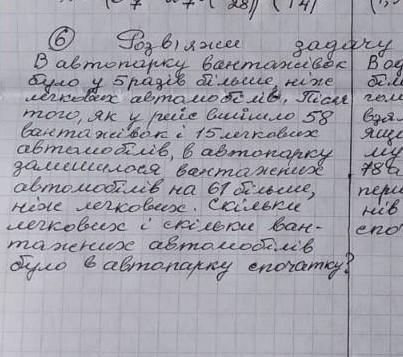 ⑥ Розв'яжи задачу
В автопарку вантажівок
було у 5 разів більше, ніж
легкових автомобілів. Після
того, як у рейс вийшло 58
вантажівок і 15 легкових
автомобілів, в автопарку
залишилося вантажних
автомобілів на 61 більше,
ніж легкових. Скільки
легкових і скільки ван-
тажних автомобілів
було в автопарку спочатку?